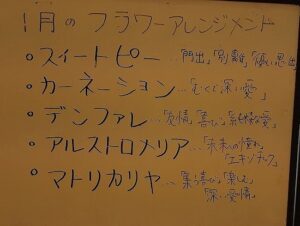 1月のフラワーアレンジメント
・スイートピー…「門出」「別離」「優しい思出
・カーネーション…「むくで深い愛」
・デンファレ…「友情」「喜び」「純粋な愛」
・アルストロメリア…「未来の憧れ」
「エキゾチック」
・マトリカリヤ…「集う喜び」「楽しむ」
「深い愛情」